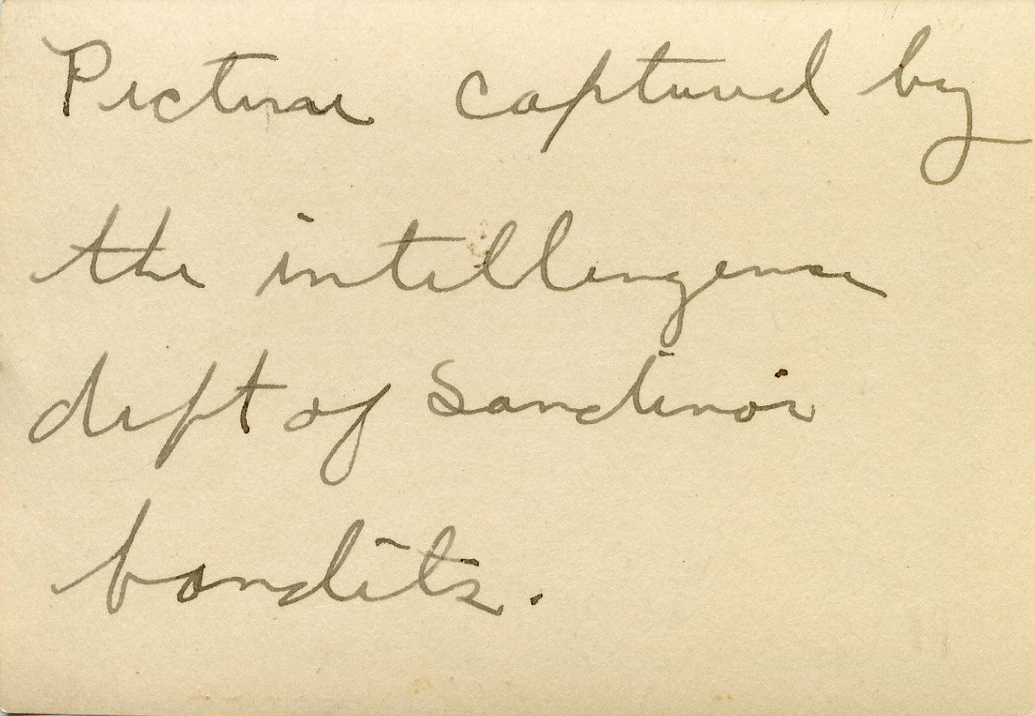 Picture captured by
the intellengense
dept of Sandinos
bandits.